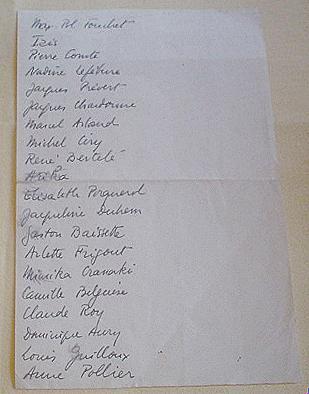 Max-Pol Fouchet
Izis
Pierre Comte
Nadine Lefébure
Jacques Prévert
Jacques Chardonne
Marcel Arland
Michel Ciry
René Bertelé
Elisabeth
Jacqueline Duhem
Gaston Baissette
Arlette Frigout
Mimika Cranaki
Camille
Claude Roy
Dominique Aury
Louis Guilloux
Anne Pollier